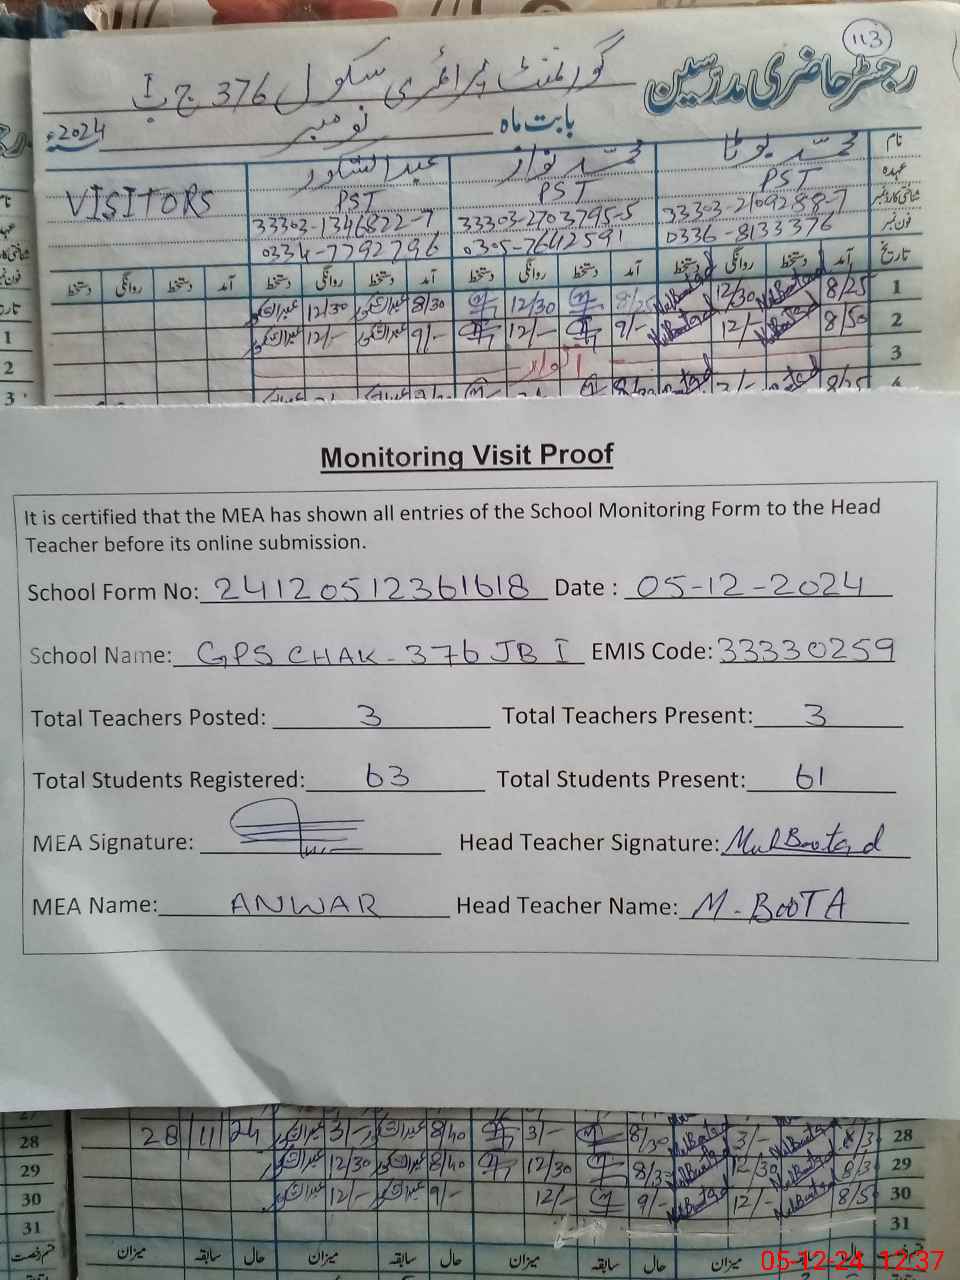 113
رجسٹر حاضری مدرسین گورنمنٹ پرائمری سکول 376 ج ب I
بابت ماہ نومبر 2024ء
نام محمد بوٹا محمد نواز عبدالشکور VISITORS
عہدہ PST PST PST
شناختی کارڈ نمبر 33303-2109288-7 33303-2703795-5 33303-1346822-7
فون نمبر 0336-8133376 0305-7642591 0334-7792796
تاریخ آمد دستخط روانگی دستخط آمد دستخط روانگی دستخط آمد دستخط روانگی دستخط آمد دستخط روانگی دستخط
1 8/25 12/30 8/25 12/30 8/30 12/30
2 8/50 12/- 9/- 12/- 9/- 12/-
3 اتوار
Monitoring Visit Proof
It is certified that the MEA has shown all entries of the School Monitoring Form to the Head
Teacher before its online submission.
School Form No: 24120512361618 Date : 05-12-2024
School Name: GPS CHAK-376 JB I EMIS Code: 33330259
Total Teachers Posted: 3 Total Teachers Present: 3
Total Students Registered: 63 Total Students Present: 61
MEA Signature: Head Teacher Signature:
MEA Name: ANWAR Head Teacher Name: M-BOOTA
28 8/3 3/- 8/30 3/- 8/40 3/- 28/11/24
29 8/3 12/30 8/3 12/30 8/40 12/30
30 8/5 12/- 9/- 12/- 9/- 12/-
31
میزان سابقہ حال میزان سابقہ حال میزان سابقہ حال میزان
05-12-24 12:37